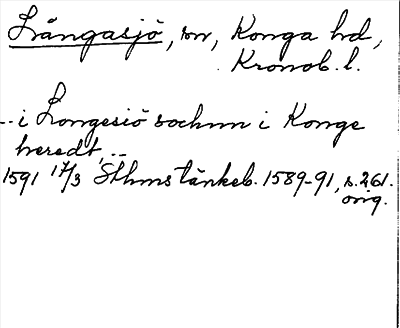 Långasjö, sn, Konga hd,
Kronob. l.
.. i Longesiö sochnn i Konge
heredt, ..
1591 17/3 Sthms tänkeb. 1589-91, s. 261.
orig.